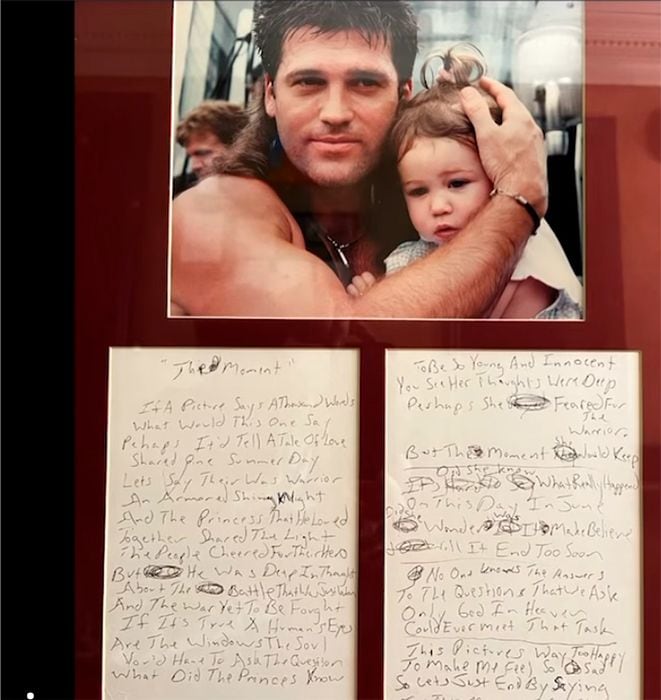 "The Moment"
If A Picture Says A Thousand Words
What Would This One Say
Pehaps It'd Tell A Tale Of Love
Shared One Summer Day
Lets Say Their Was Warrior
An Armored Shining Knight
And The Princess That He Loved
Together Shared The Light
The People Cheered For Their Hero
But He Was Deep In Thought
About The Battle That He Just
And The War Yet To Be Fought
If It's True A Human's Eyes
Are The Windows The Soul
You'd Have To Ask The Question
What Did The Princes Know
To Be So Young And Innocent
You See Her Thoughts Were Deep
Perhaps She Feared For
The
Warrior,
She
But The Moment Would Keep
Did she know
What Really Happened
On This Day In June
Did She was
Wonder If It Make Believe
Will It End Too Soon
No One knows The Answers
To The Questions That We Ask
Only God In Heaven
Could Ever Meet That Task
This Pictures Way Too Happy
To Make Me Feel So Sad
So Lets Just End By Saying